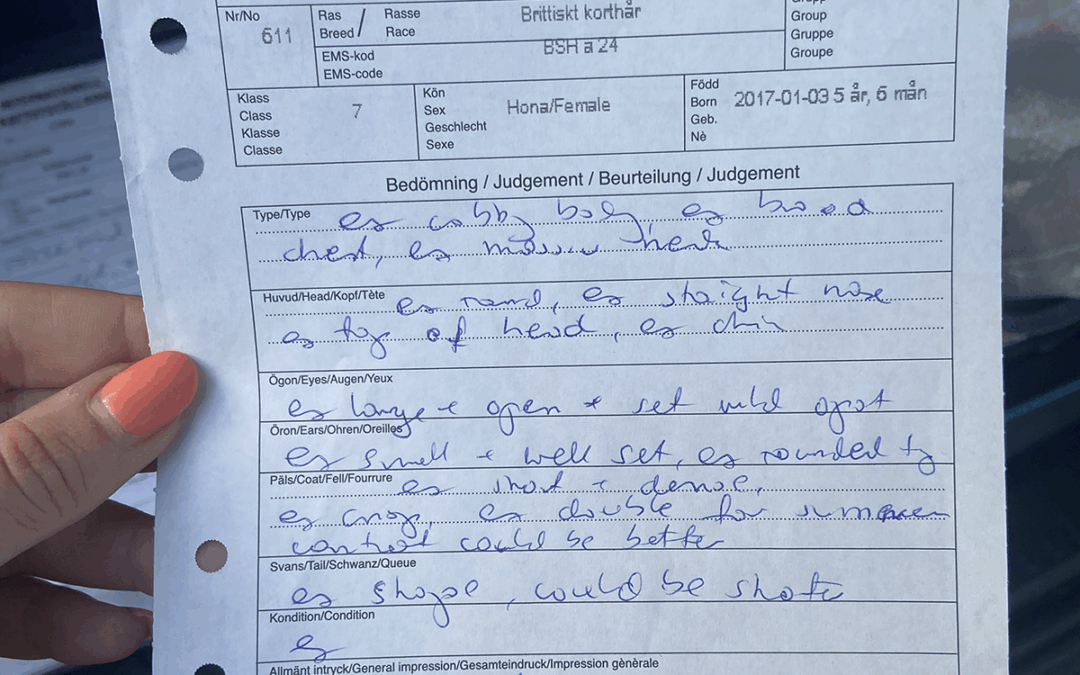 Nr/No Ras Rasse Brittiskt korthår Group
611 Breed Race Gruppe
Groupe
EMS-kod BSH a 24
EMS-code
Klass Kön Född
Class 7 Sex Hona/Female Born 2017-01-03 5 år, 6 mån
Klasse Geschlecht Geb.
Classe Sexe Nè
Bedömning / Judgement / Beurteilung / Judgement
Type/Type ex cobby body ex broad
chest, ex neck
Huvud/Head/Kopf/Tète ex round, ex straight nose
ex top of head, ex chin
Ögon/Eyes/Augen/Yeux
ex large + open + set well apart
Öron/Ears/Ohren/Oreilles
ex small + well set, ex rounded tip
Päls/Coat/Fell/Fourrure ex short + dense,
ex crisp, ex double for summer
contrast could be better
Svans/Tail/Schwanz/Queue
ex shape, could be shorter
Kondition/Condition
ex
Allmänt intryck/General impression/Gesamteindruck/Impression gènèrale